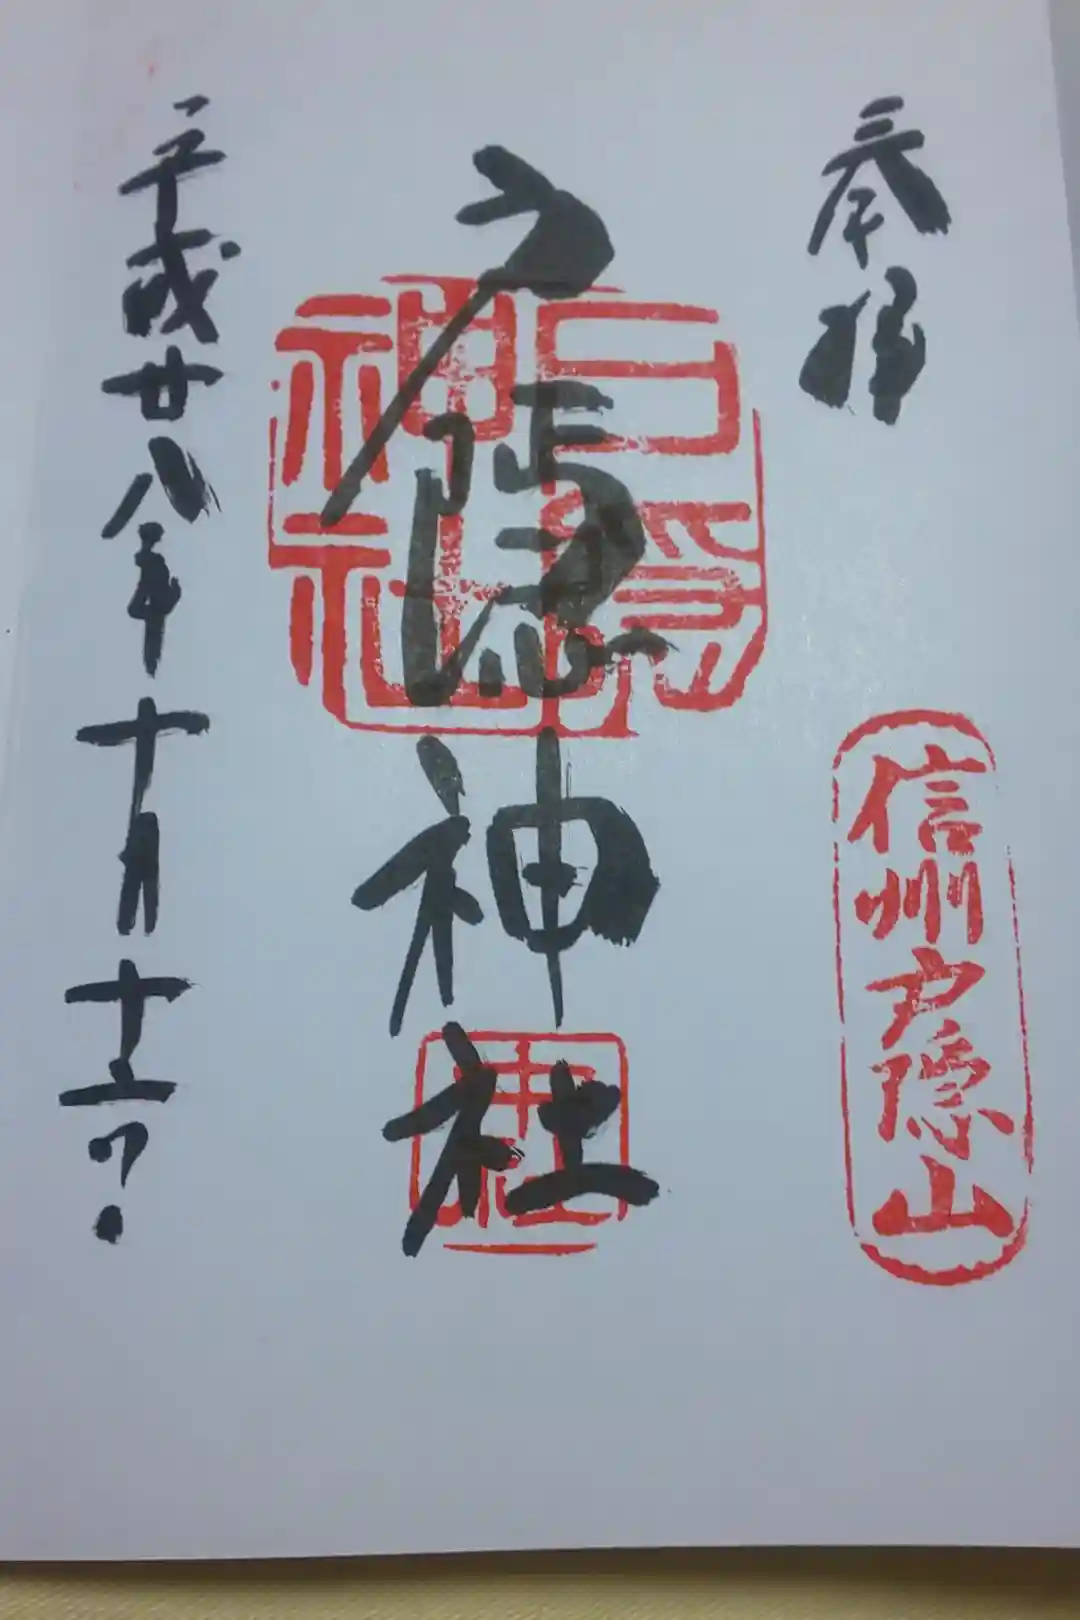 奉拝
信州戸隠山
戸隠神社
戸隠神社
中社
平成廿八年十月十二日